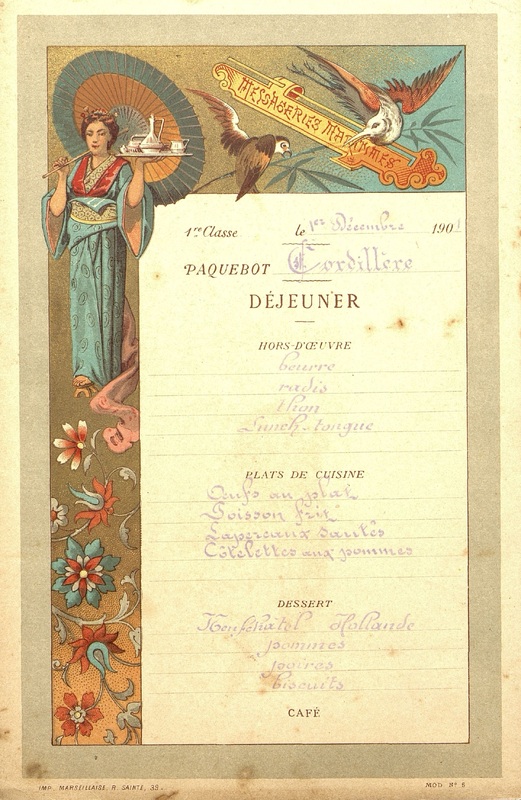 MESSAGERIES MARITIMES
1re Classe le 1er Décembre 1901
PAQUEBOT Cordillère
DÉJEUNER
HORS-D'ŒUVRE
beurre
radis
thon
Lunch-tongue
PLATS DE CUISINE
Œufs au plat
Poisson frit
Lapereaux sautés
Côtelettes aux pommes
DESSERT
Neufchatel Hollande
pommes
poires
biscuits
CAFÉ
IMP. MARSEILLAISE, R. SAINTE, 39. MOD. No 5